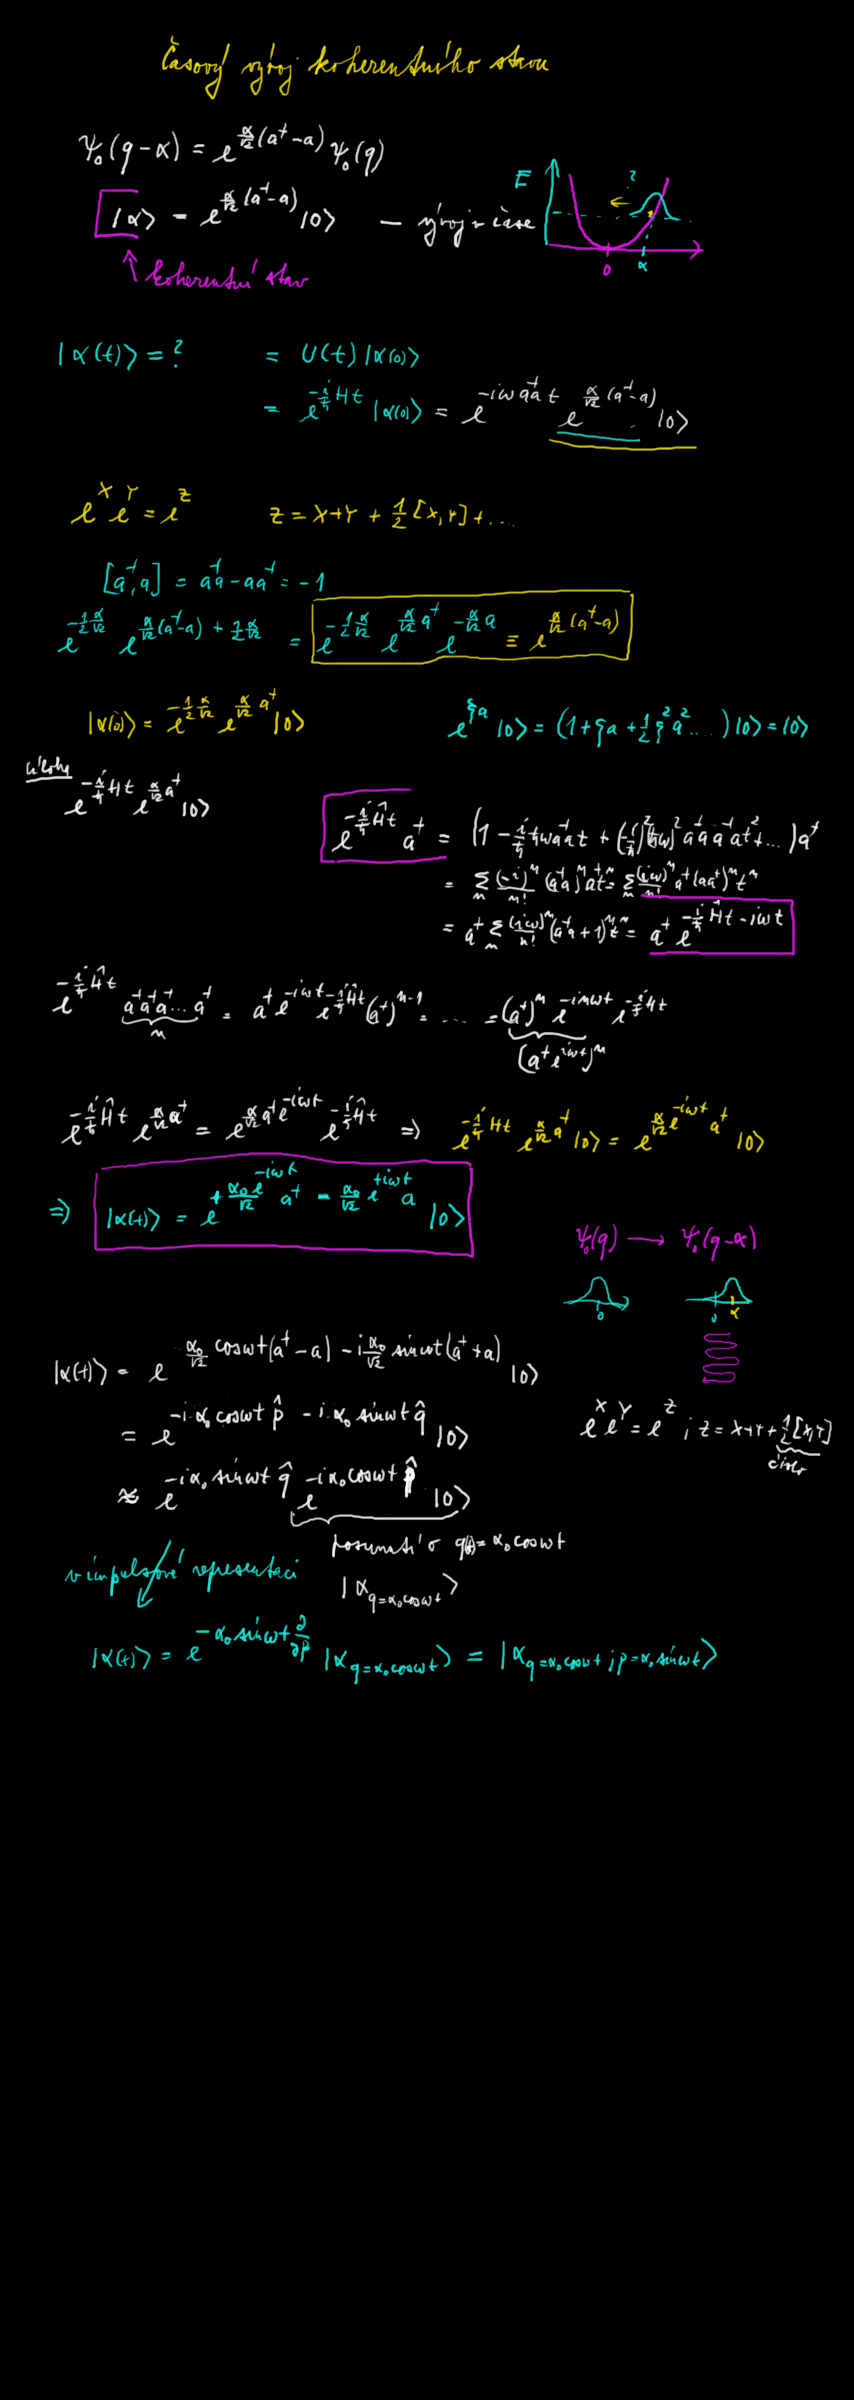 Časový vývoj koherentního stavu
ψ₀(q-α) = e^{α/√2 (a†-a)} ψ₀(q)
|α⟩ = e^{α/√2 (a†-a)} |0⟩ — vývoj v čase
E ?
0 α
↑ koherentní stav
|α(t)⟩ = ? = U(t) |α(0)⟩
= e^{-i/ħ Ht} |α(0)⟩ = e^{-iω a†a t} e^{α/√2 (a†-a)} |0⟩
e^X e^Y = e^Z Z = X+Y + 1/2 [X,Y] + ...
[a†,a] = a†a - aa† = -1
e^{-1/2 α/√2} e^{α/√2 (a†-a) + 1/2 α/√2} = e^{-1/2 α/√2} e^{α/√2 a†} e^{-α/√2 a} ≡ e^{α/√2 (a†-a)}
|α(0)⟩ = e^{-1/2 α/√2} e^{α/√2 a†} |0⟩ e^{ξa} |0⟩ = (1+ξa + 1/2 ξ²a² ....) |0⟩ = |0⟩
úloha
e^{-i/ħ Ht} e^{α/√2 a†} |0⟩
e^{-i/ħ Ĥt} a† = (1 - i/ħ ħω a†a t + (-i/ħ)² (ħω)² a†a a†a t² + ...) a†
= Σ_n (-i)^n/n! (a†a)^n a† t^n = Σ_n (iω)^n/n! a† (aa†)^n t^n
= a† Σ_n (iω)^n/n! (a†a+1)^n t^n = a† e^{-i/ħ Ĥt - iωt}
e^{-i/ħ Ĥt} a†a†a†... a† = a† e^{-iωt} e^{-i/ħ Ĥt} (a†)^{n-1} = .... = (a†)^n e^{-inωt} e^{-i/ħ Ht}
n (a† e^{iωt})^n
e^{-i/ħ Ĥt} e^{α/√2 a†} = e^{α/√2 a† e^{-iωt}} e^{-i/ħ Ĥt} ⇒ e^{-i/ħ Ht} e^{α/√2 a†} |0⟩ = e^{α/√2 e^{-iωt} a†} |0⟩
⇒ |α(t)⟩ = e^{+α₀e^{-iωt}/√2 a† - α₀/√2 e^{+iωt} a} |0⟩
ψ₀(q) → ψ₀(q-α)
0 0 α
|α(t)⟩ = e^{α₀/√2 cosωt (a†-a) - i α₀/√2 sinωt (a†+a)} |0⟩
= e^{-iα₀ cosωt p̂ - iα₀ sinωt q̂} |0⟩
e^X e^Y = e^Z ; Z = X+Y + 1/2 [X,Y]
číslo
≈ e^{-iα₀ sinωt q̂} e^{-iα₀ cosωt p̂} |0⟩
posunutí o q(t) = α₀ cosωt
v impulsové representaci
|α_{q=α₀cosωt}⟩
|α(t)⟩ = e^{-α₀ sinωt ∂/∂p} |α_{q=α₀cosωt}⟩ = |α_{q=α₀cosωt ; p=α₀sinωt}⟩